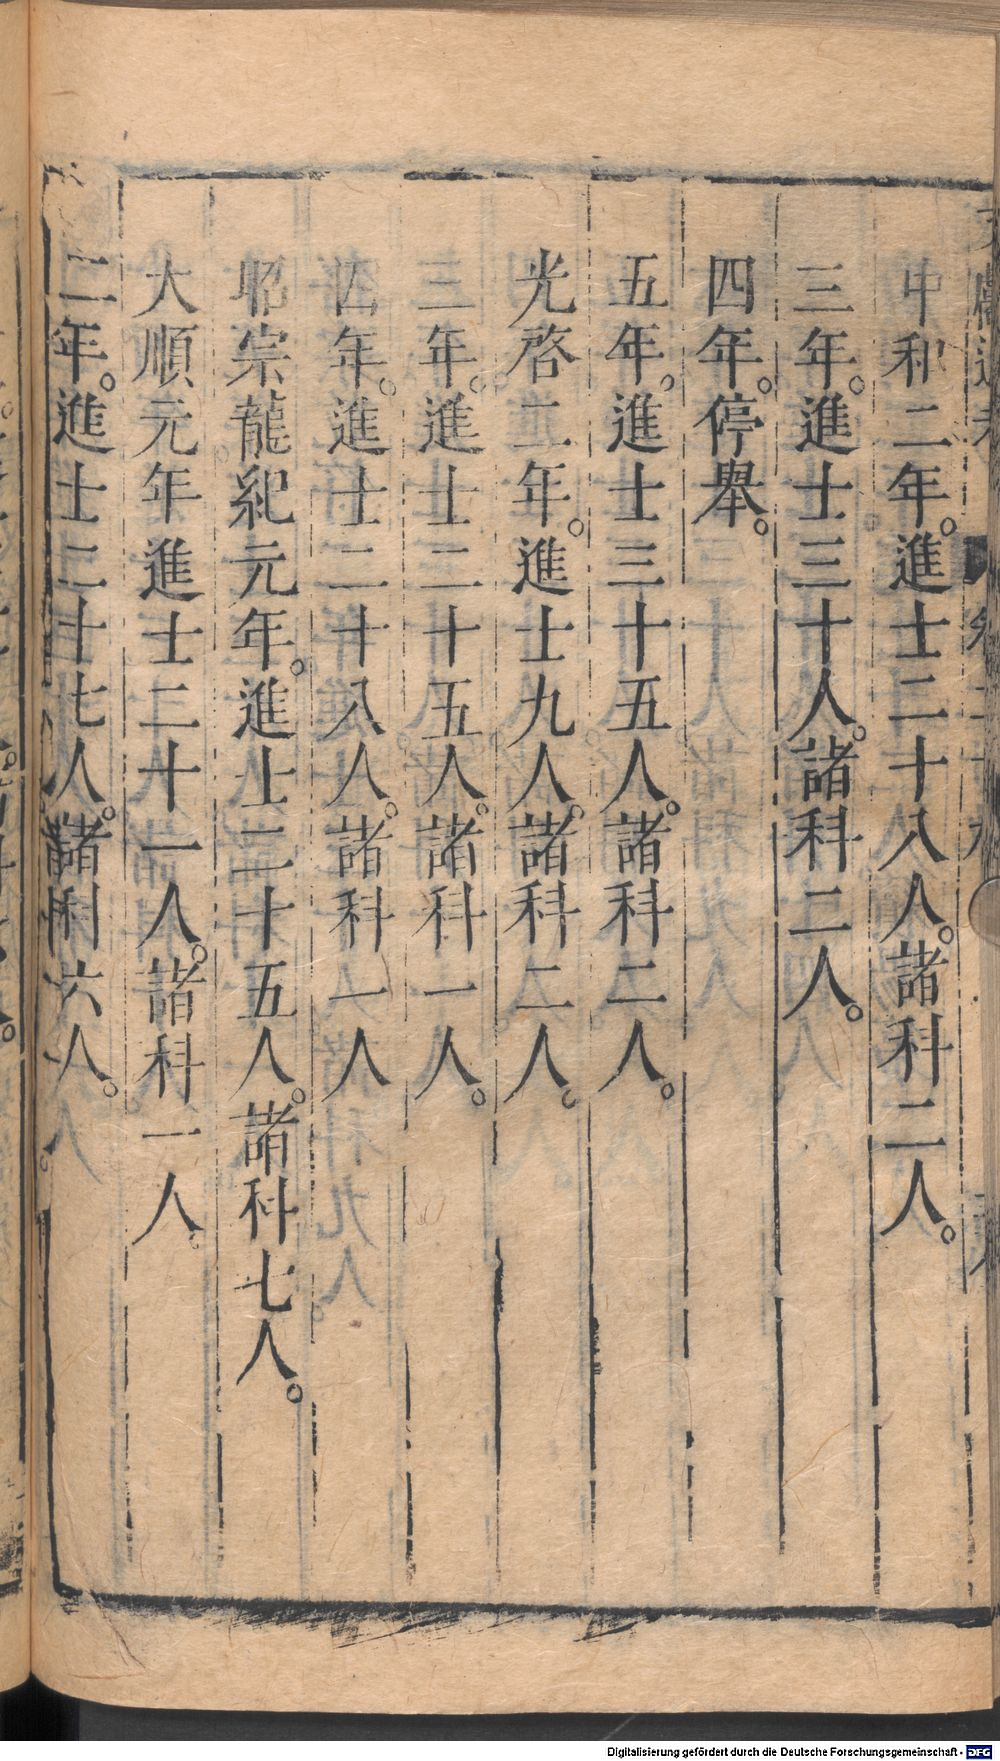 中和二年。進士二十八人。諸科二人。
三年。進士三十人。諸科二人。
四年。停舉。
五年。進士三十五人。諸科二人。
光啓二年。進士九人。諸科二人。
三年。進士二十五人。諸科一人。
四年。進士二十八人。諸科一人
昭宗龍紀元年。進士二十五人。諸科七人。
大順元年進士二十一人。諸科一人。
二年。進士二十七人。諸科六人。
Digitalisierung gefördert durch die Deutsche Forschungsgemeinschaft - DFG